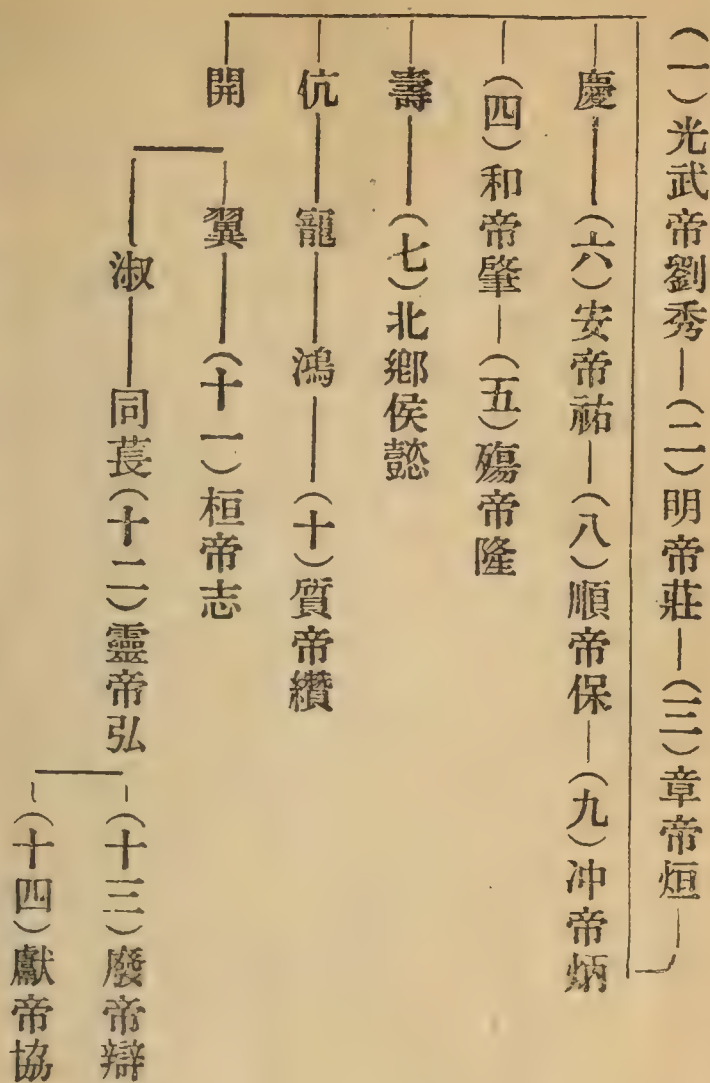 (一)光武帝劉秀—(二)明帝莊—(三)章帝烜
慶——(六)安帝祐—(八)順帝保—(九)冲帝炳
(四)和帝肇—(五)殤帝隆
壽——(七)北鄉侯懿
伉——寵——鴻——(十)質帝纘
開
翼——(十一)桓帝志
淑——同萇(十二)靈帝弘
(十三)廢帝辯
(十四)獻帝協